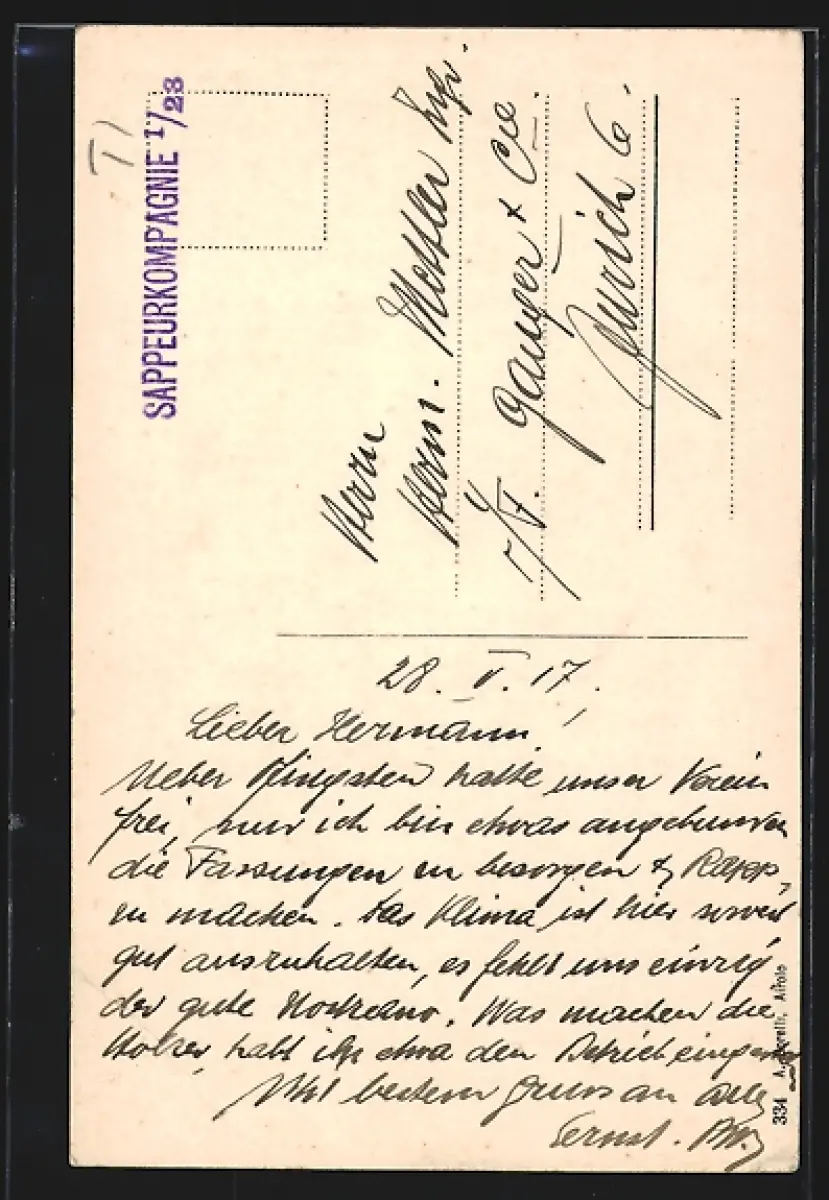 SAPPEURKOMPAGNIE I/23
TI
Herrn
Herm. Mettler Ingr.
i/F. Ganger & Cie.
Zürich 6.
28. V. 17.
Lieber Hermann!
Ueber Pfingsten hatte unser Verein
frei, nur ich bin etwas angebunden
die Fassungen zu besorgen & Rapp.
zu machen. Das Klima ist hier soweit
gut auszuhalten, es fehlt uns einzig
der gute Nostrano. Was machen die
habt ihr etwa den Betrieb
Mit bestem Gruss an Alle
Ernst.
334 A. Airolo